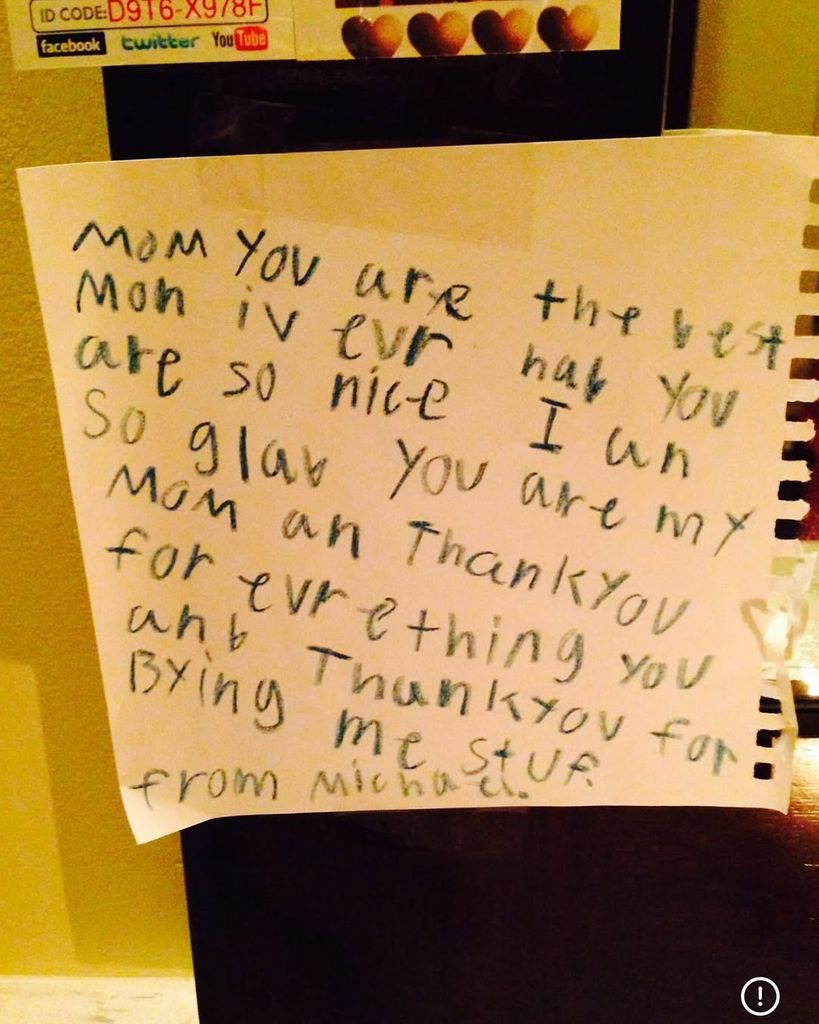 ID CODE: D9T6-X978F
facebook twitter YouTube
MOM YOU are the best
Mon iv evr hab YOU
are so nice I an
So glab YOU are MY
Mom an ThankYOU
for evrething YOU
anb ThankYOU for
BYing me stuf.
from Michael.